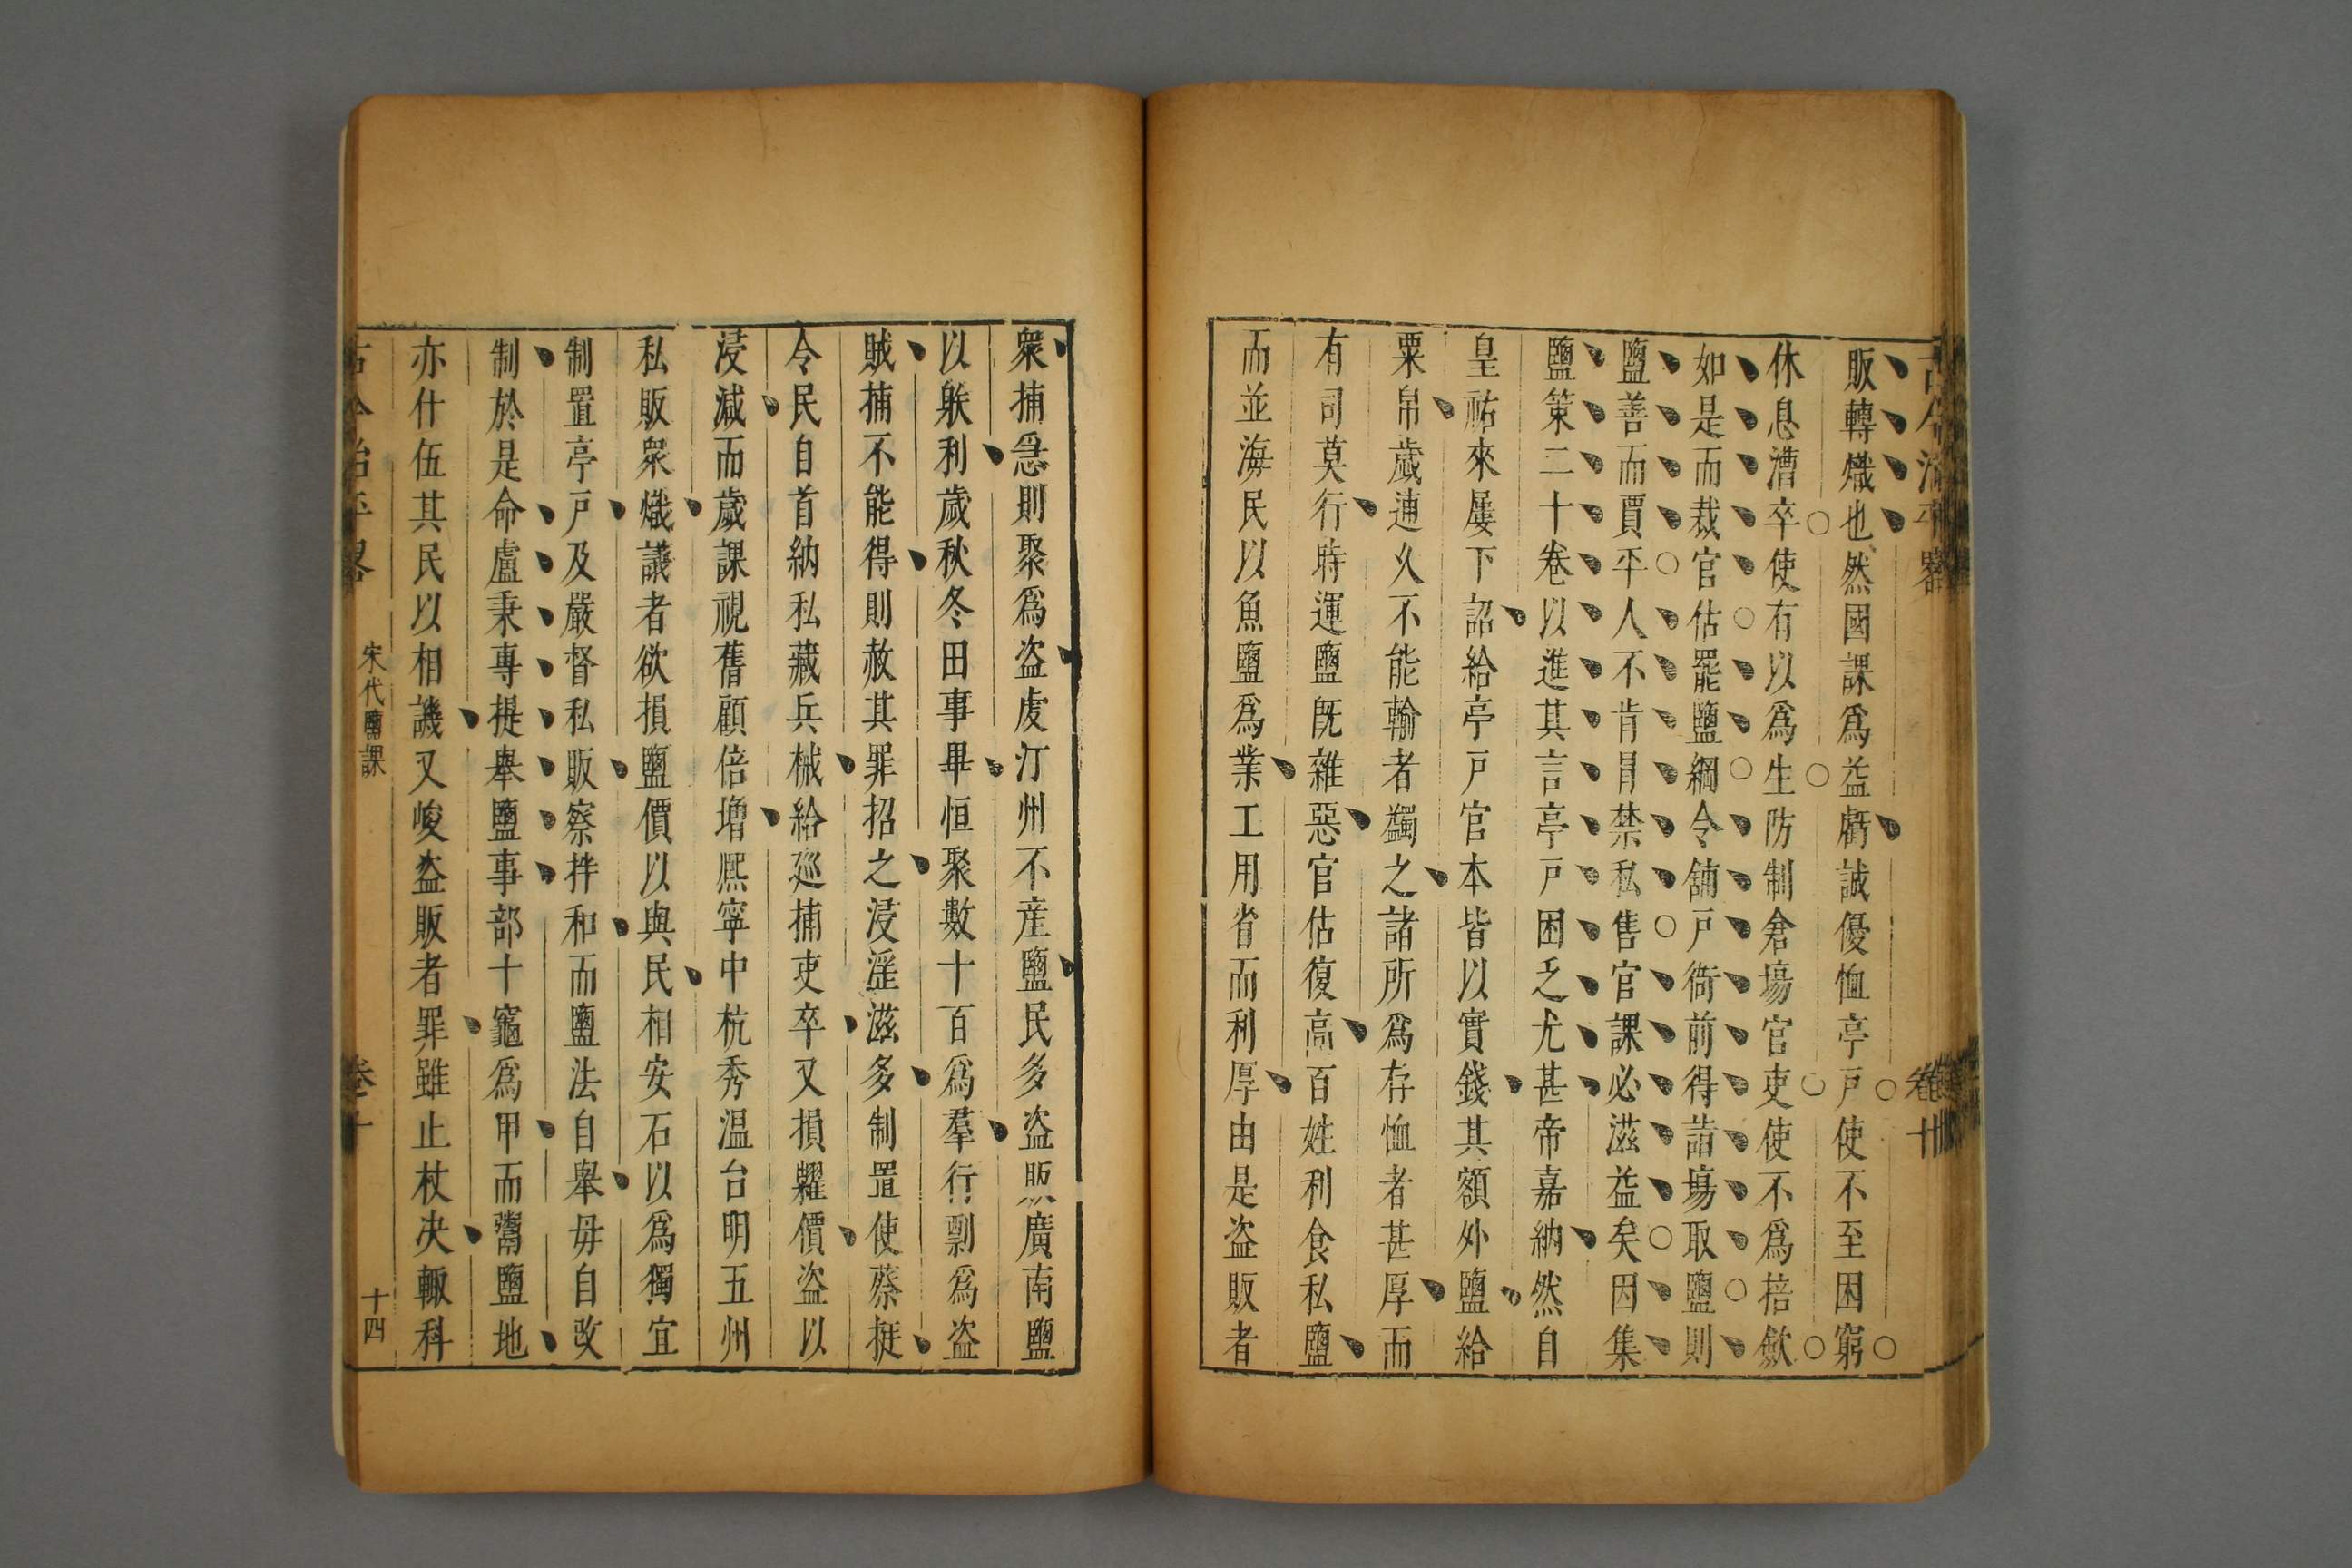 古今治平畧
卷十
販轉熾也然國課爲益虧誠優恤亭戸使不至困窮
休息漕卒使有以爲生防制倉塲官吏使不爲掊歛
如是而裁官估罷鹽綱令舖戸衙前得詣塲取鹽則
鹽善而賈平人不肯冒禁私售官課必滋益矣因集
鹽策二十卷以進其言亭戸困乏尤甚帝嘉納然自
皇祐來屢下詔給亭戸官本皆以實錢其額外鹽給
粟帛歲逋久不能輸者蠲之諸所爲存恤者甚厚而
有司莫行時運鹽旣雜惡官估復高百姓利食私鹽
而並海民以魚鹽爲業工用省而利厚由是盜販者
衆捕急則聚爲盜虔汀州不産鹽民多盜販廣南鹽
以躲利歲秋冬田事畢恒聚數十百爲羣行剽爲盜
賊捕不能得則赦其罪招之浸淫滋多制置使蔡挺
令民自首納私藏兵械給廵捕吏卒又損糶價盜以
浸減而歲課視舊顧倍增熈寧中杭秀温台明五州
私販衆熾議者欲損鹽價以與民相安石以爲獨宜
制置亭戸及嚴督私販察拌和而鹽法自舉毋自改
制於是命盧秉專提舉鹽事部十竈爲甲而鬻鹽地
亦什伍其民以相譏又峻盜販者罪雖止杖决輙科
古今治平畧
宋代鹽課
卷十
十四